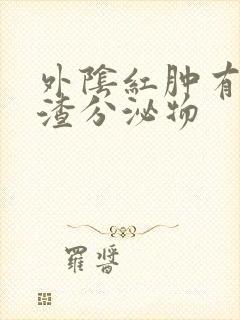 外陰紅肿有
渣分泌物
羅醬